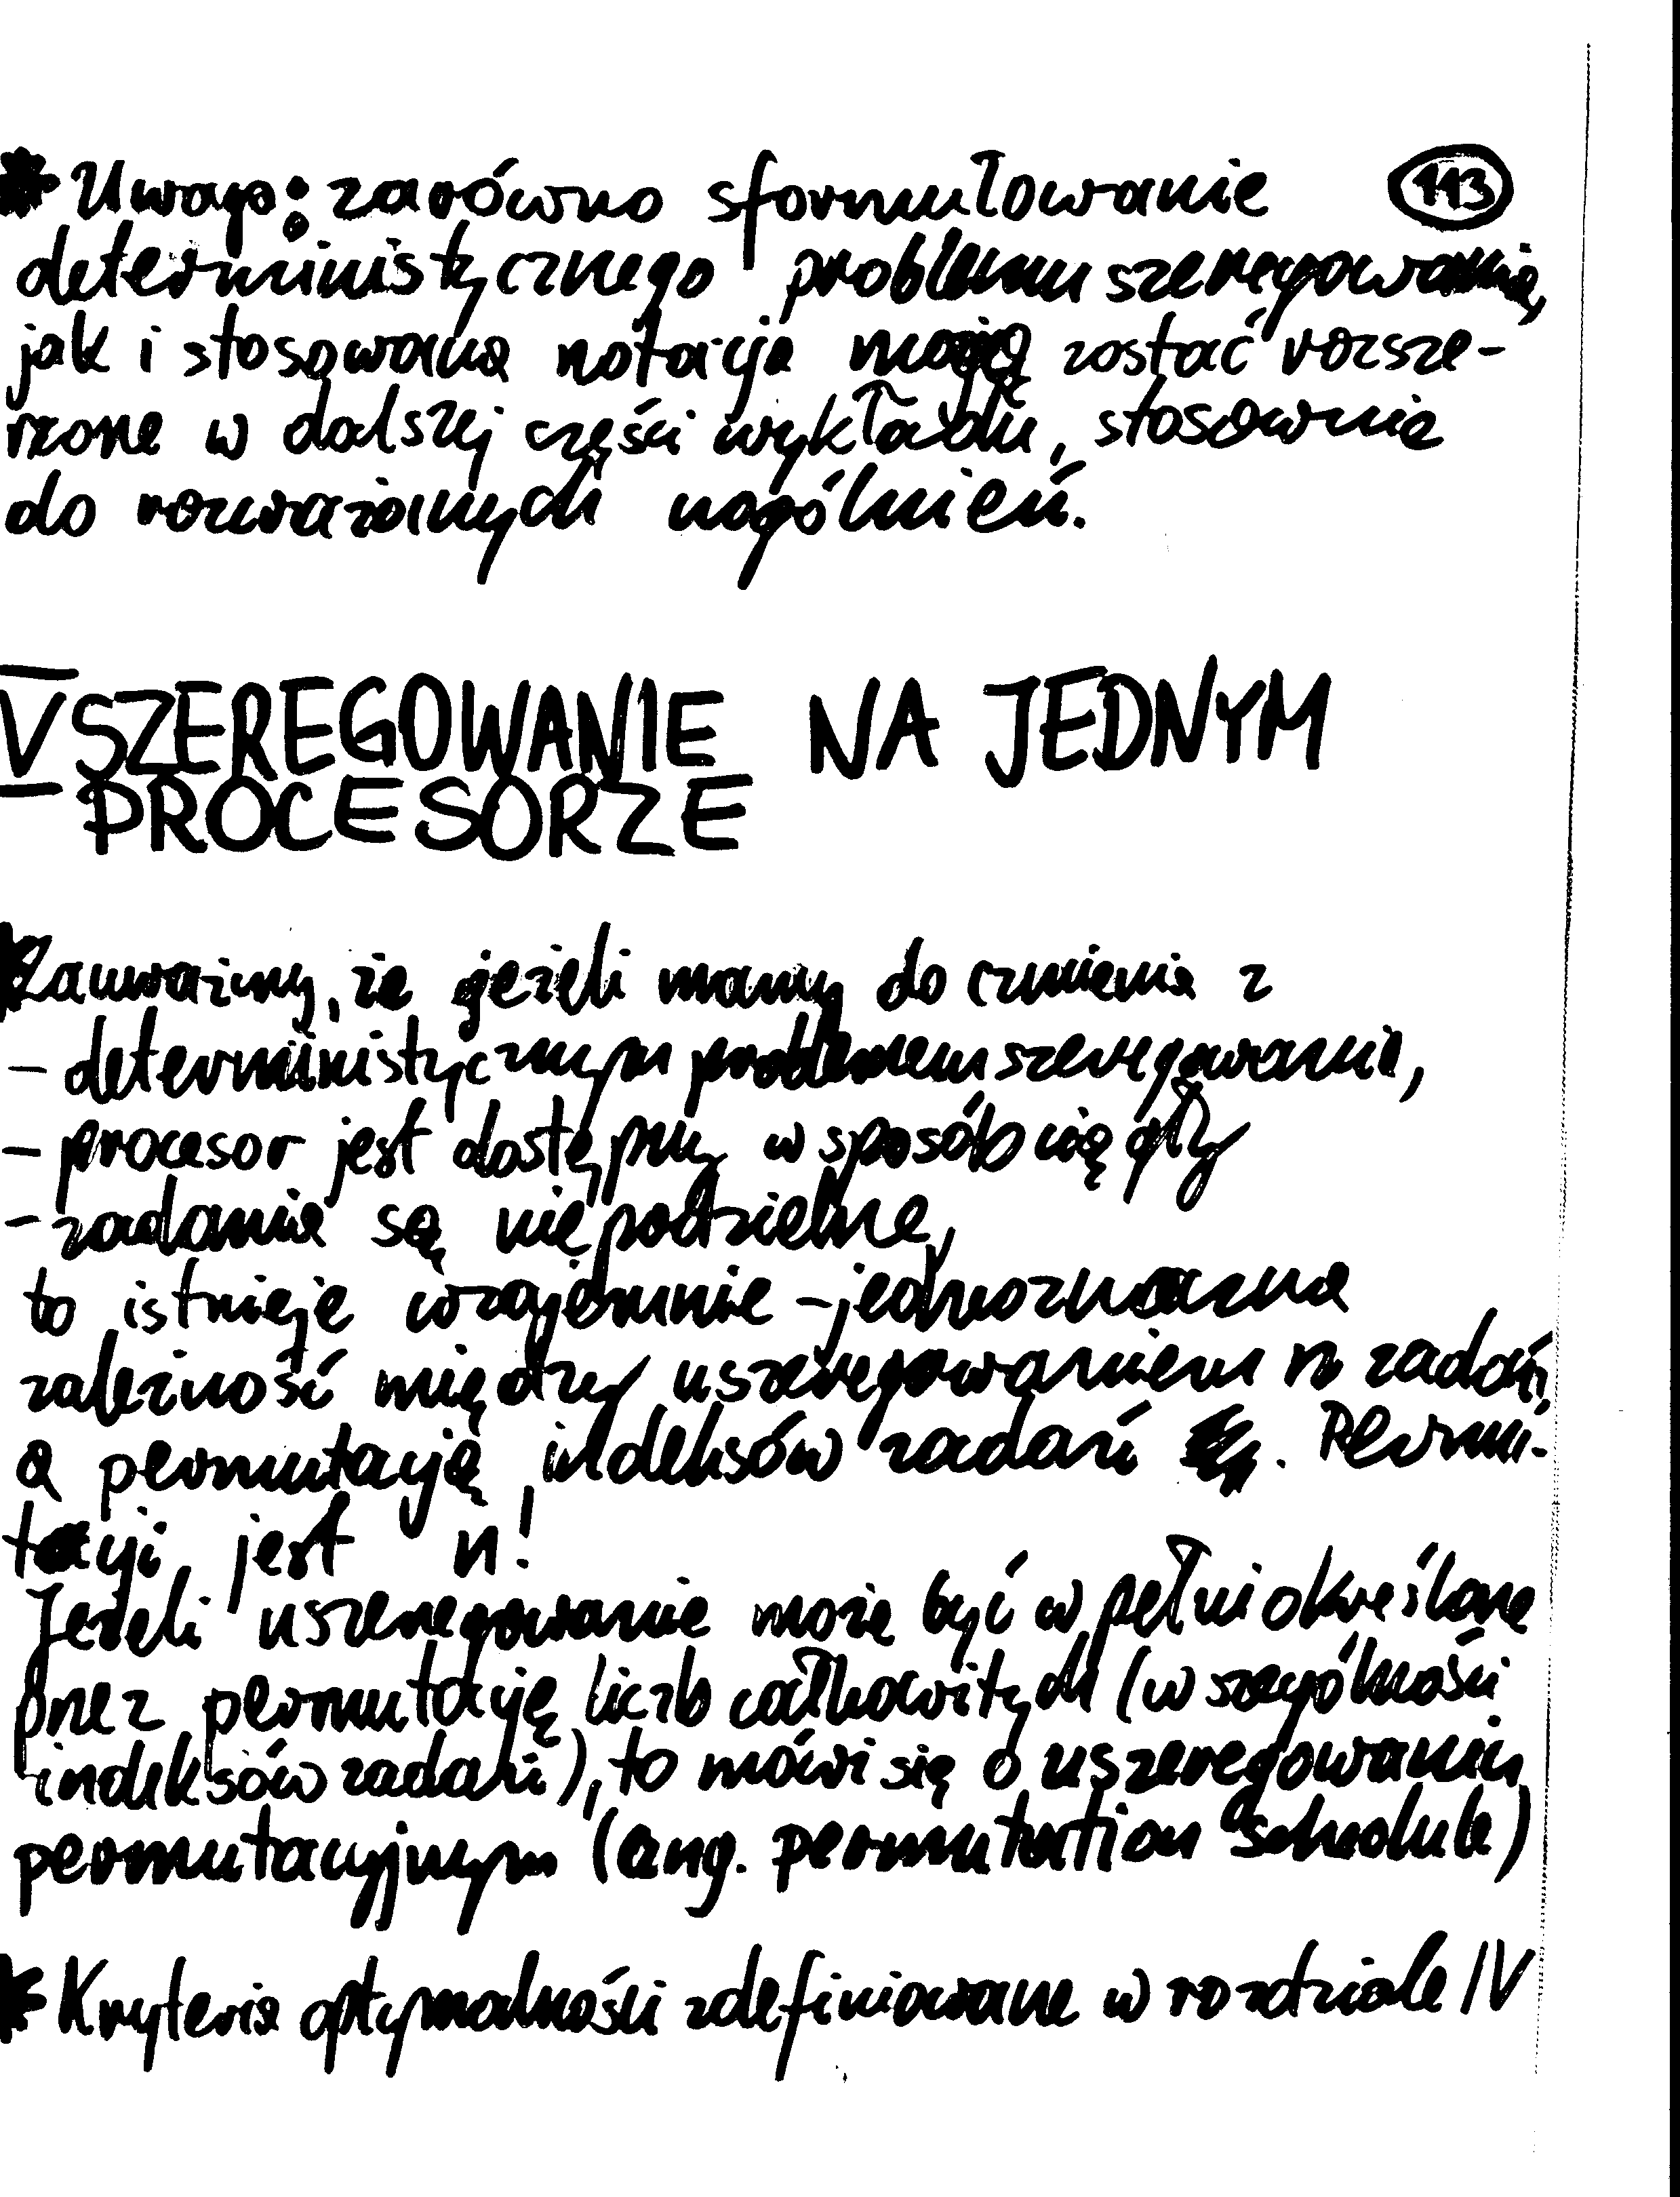 * Uwaga: zarówno sformułowanie 113
deterministycznego problemu szeregowania,
jak i stosowana notacja mogą zostać rozsze-
rzone w dalszej części wykładu, stosownie
do rozważanych uogólnień.
V SZEREGOWANIE NA JEDNYM
PROCESORZE
* Zauważmy, że jeżeli mamy do czynienia z
- deterministycznym problemem szeregowania,
- procesor jest dostępny w sposób ciągły
- zadania są niepodzielne,
to istnieje wzajemnie-jednoznaczna
zależność między uszeregowaniem n zadań,
a permutacją indeksów zadań. Permu-
tacji jest n!
Jeżeli uszeregowanie może być w pełni określone
przez permutację liczb całkowitych (w szczególności
indeksów zadań), to mówi się o uszeregowaniu
permutacyjnym (ang. permutation schedule)
* Kryteria optymalności zdefiniowane w rozdziale IV